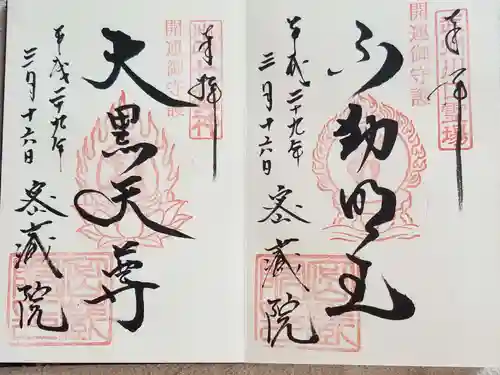 奉拝
不動明王
平成二十九年
三月十六日
密蔵院
奉拝
開運御守護
大黒天尊
平成二十九年
三月十六日
密蔵院